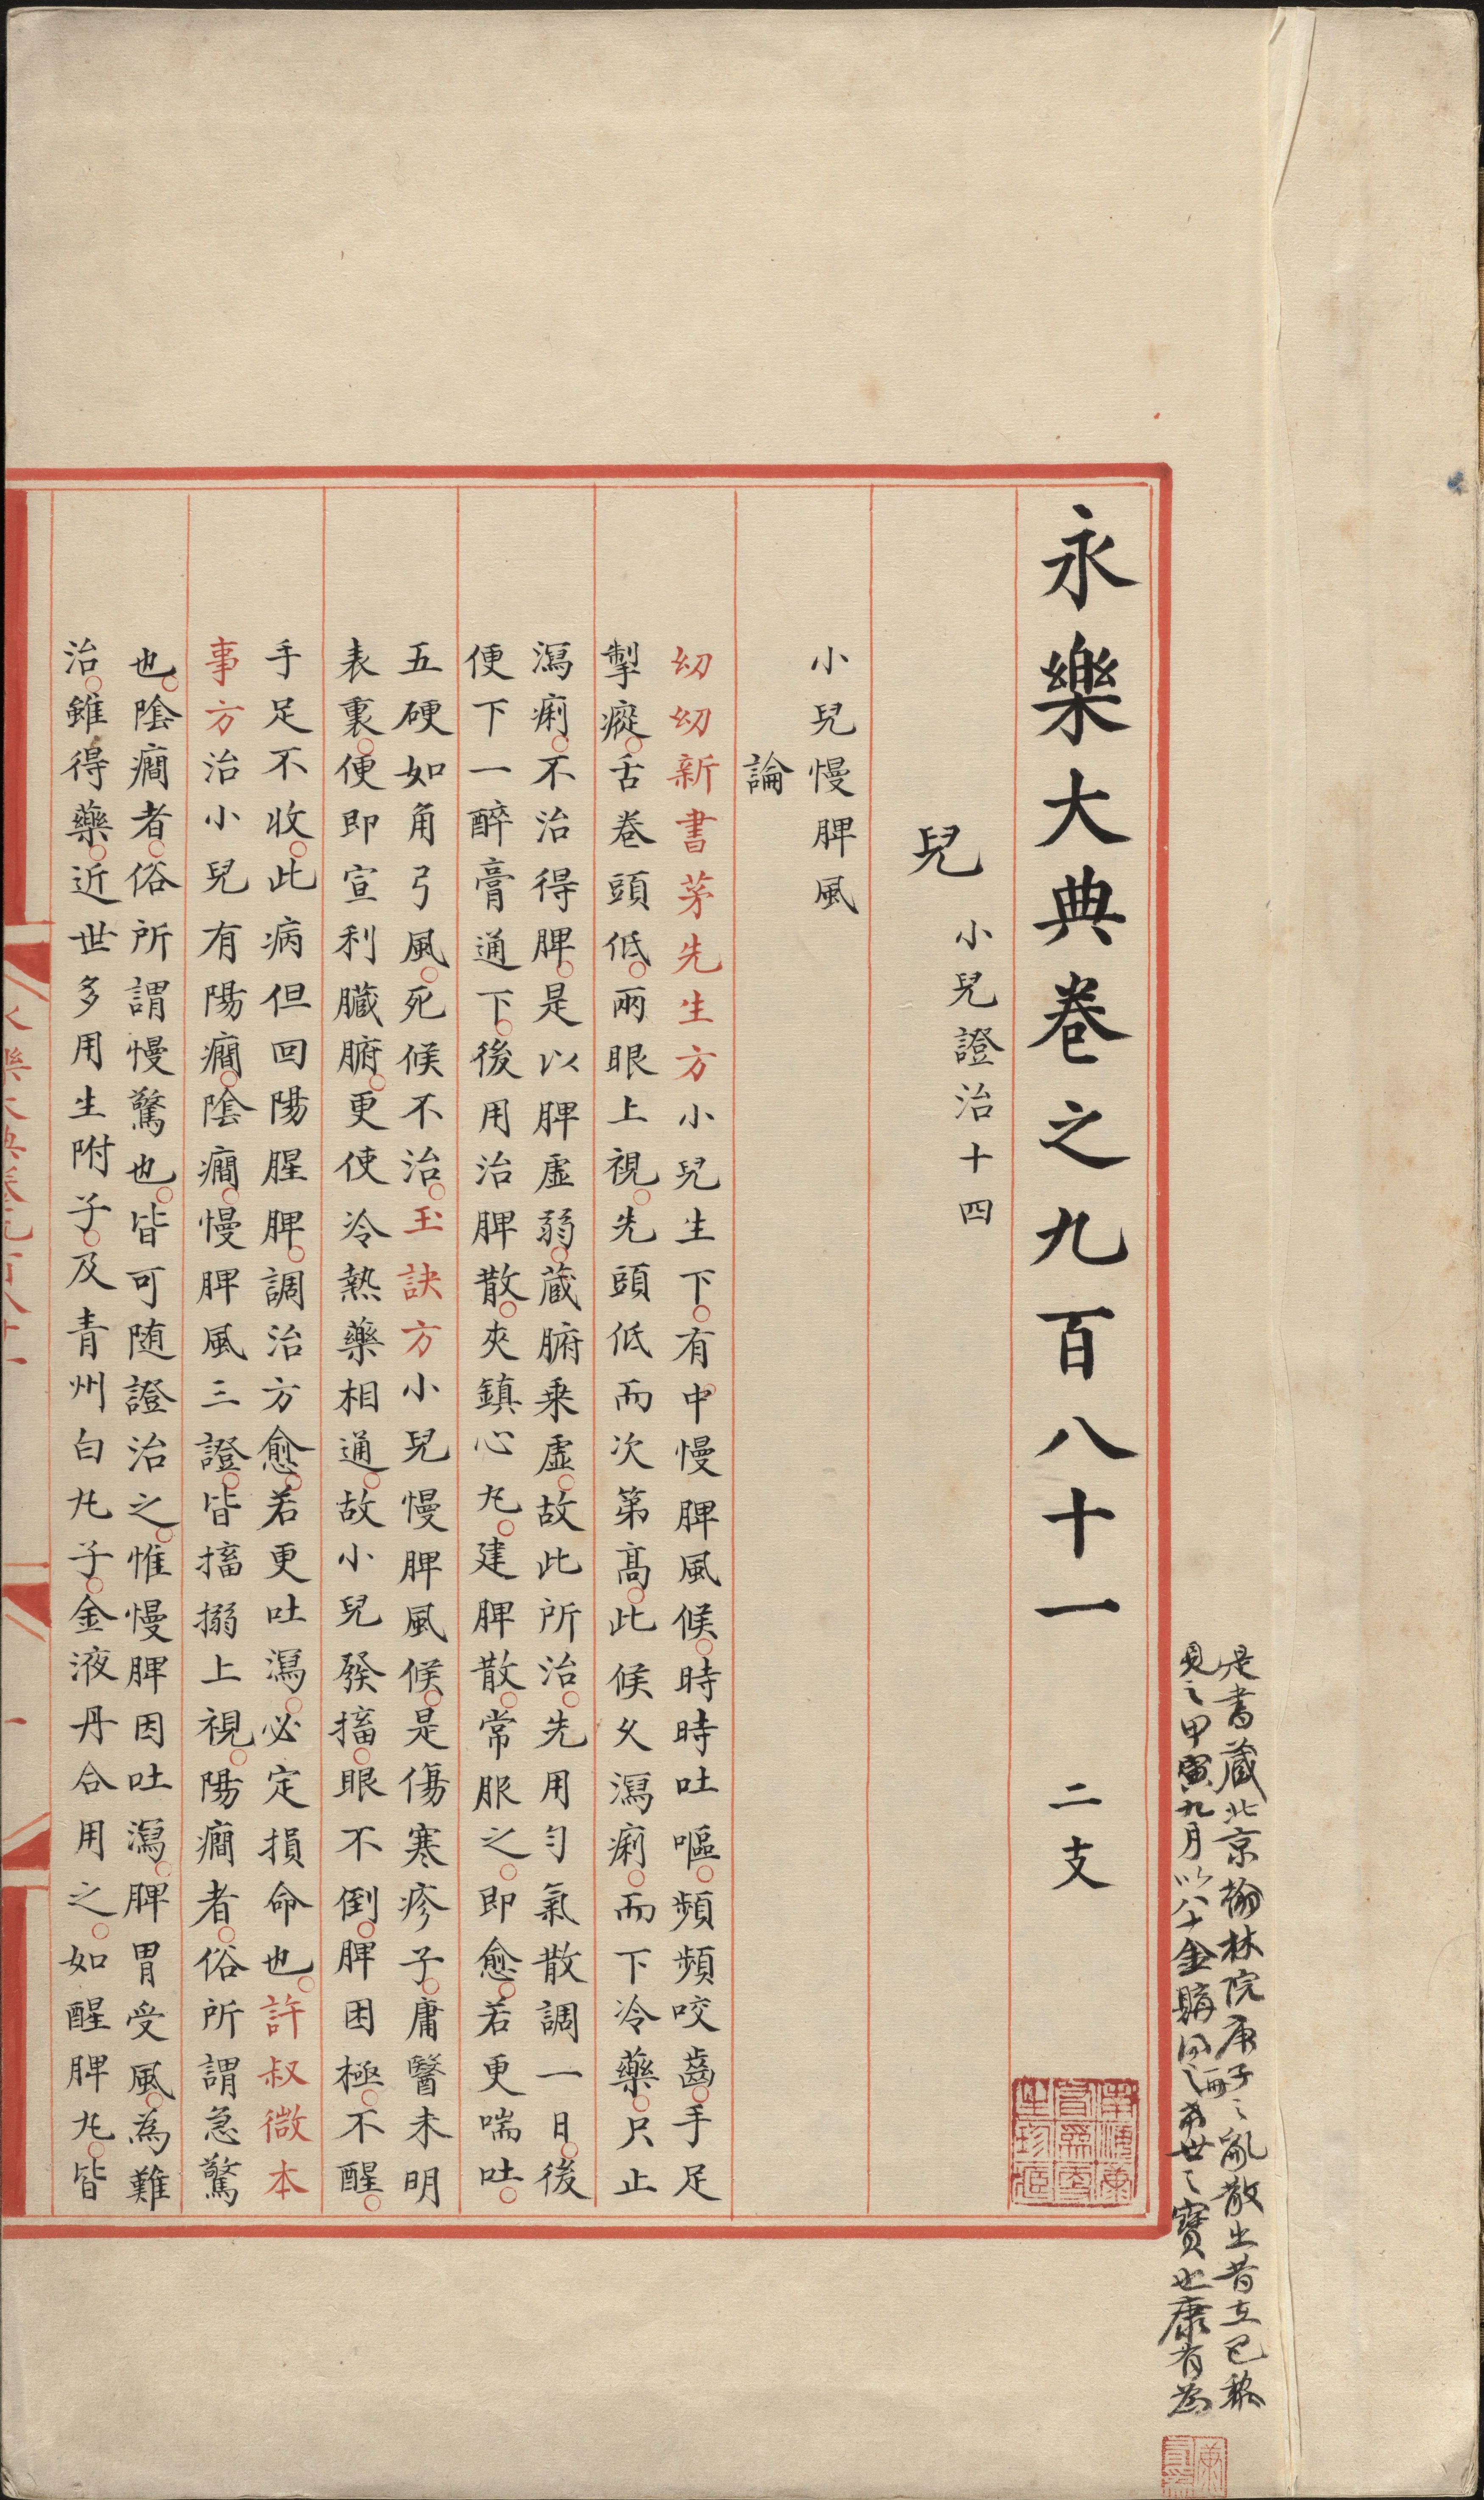 永樂大典卷之九百八十一 二支
兒 小兒證治十四
小兒慢脾風
論
㓜㓜新書茅先生方小兒生下有中慢脾風候時時吐嘔頻頻咬齒手足
掣瘲舌卷頭低兩眼上視先頭低而次第高此候乆瀉痢而下冷藥只止
瀉痢不治得脾是以脾虛弱蔵腑乗虛故此所治先用勻氣散調一日後
便下一醉膏通下後用治脾散夾鎮心圥建脾散常服之即愈若更喘吐
五硬如角弓風死候不治玉訣方小兒慢脾風候是傷寒疹子庸醫未明
表裏便即宣利臟腑更使冷熱藥相通故小兒發搐眼不倒脾困極不醒
手足不收此病但回陽腥脾調治方愈若更吐瀉必定損命也許叔微本
事方治小兒有陽癎陰癎慢脾風三證皆搐搦上視陽癎者俗所謂急驚
也陰癎者俗所謂慢驚也皆可随證治之惟慢脾因吐瀉脾胃受風為難
治雖得藥近世多用生附子及青州白圥子金液丹合用之如醒脾圥皆
是書蔵北京翰林院庚子之亂散出昔在巴黎
見之甲寅九月以八十金購得二冊希世之寶也康有為